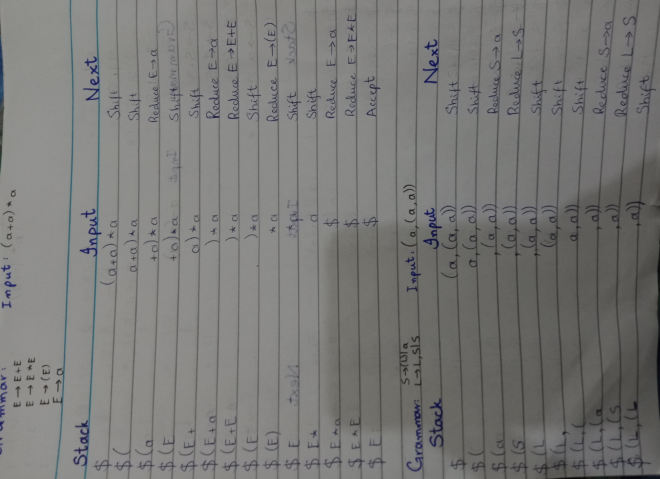 Input: (a+a)*a
E→E+E
E→E*E
E→(E)
E→a
Stack Input Next
$ (a+a)*a Shift
$( a+a)*a Shift
$(a +a)*a Reduce E→a
$(E +a)*a Shift
$(E+ a)*a Shift
$(E+a )*a Reduce E→a
$(E+E )*a Reduce E→E+E
$(E )*a Shift
$(E) *a Reduce E→(E)
$E *a Shift
$E* a Shift
$E*a $ Reduce E→a
$E*E $ Reduce E→E*E
$E $ Accept
Grammar: S→(L)|a Input: (a,(a,a))
L→L,S|S
Stack Input Next
$ (a,(a,a)) Shift
$( a,(a,a)) Shift
$(a ,(a,a)) Reduce S→a
$(S ,(a,a)) Reduce L→S
$(L ,(a,a)) Shift
$(L, (a,a)) Shift
$(L,( a,a)) Shift
$(L,(a ,a)) Reduce S→a
$(L,(S ,a)) Reduce L→S
$(L,(L ,a)) Shift